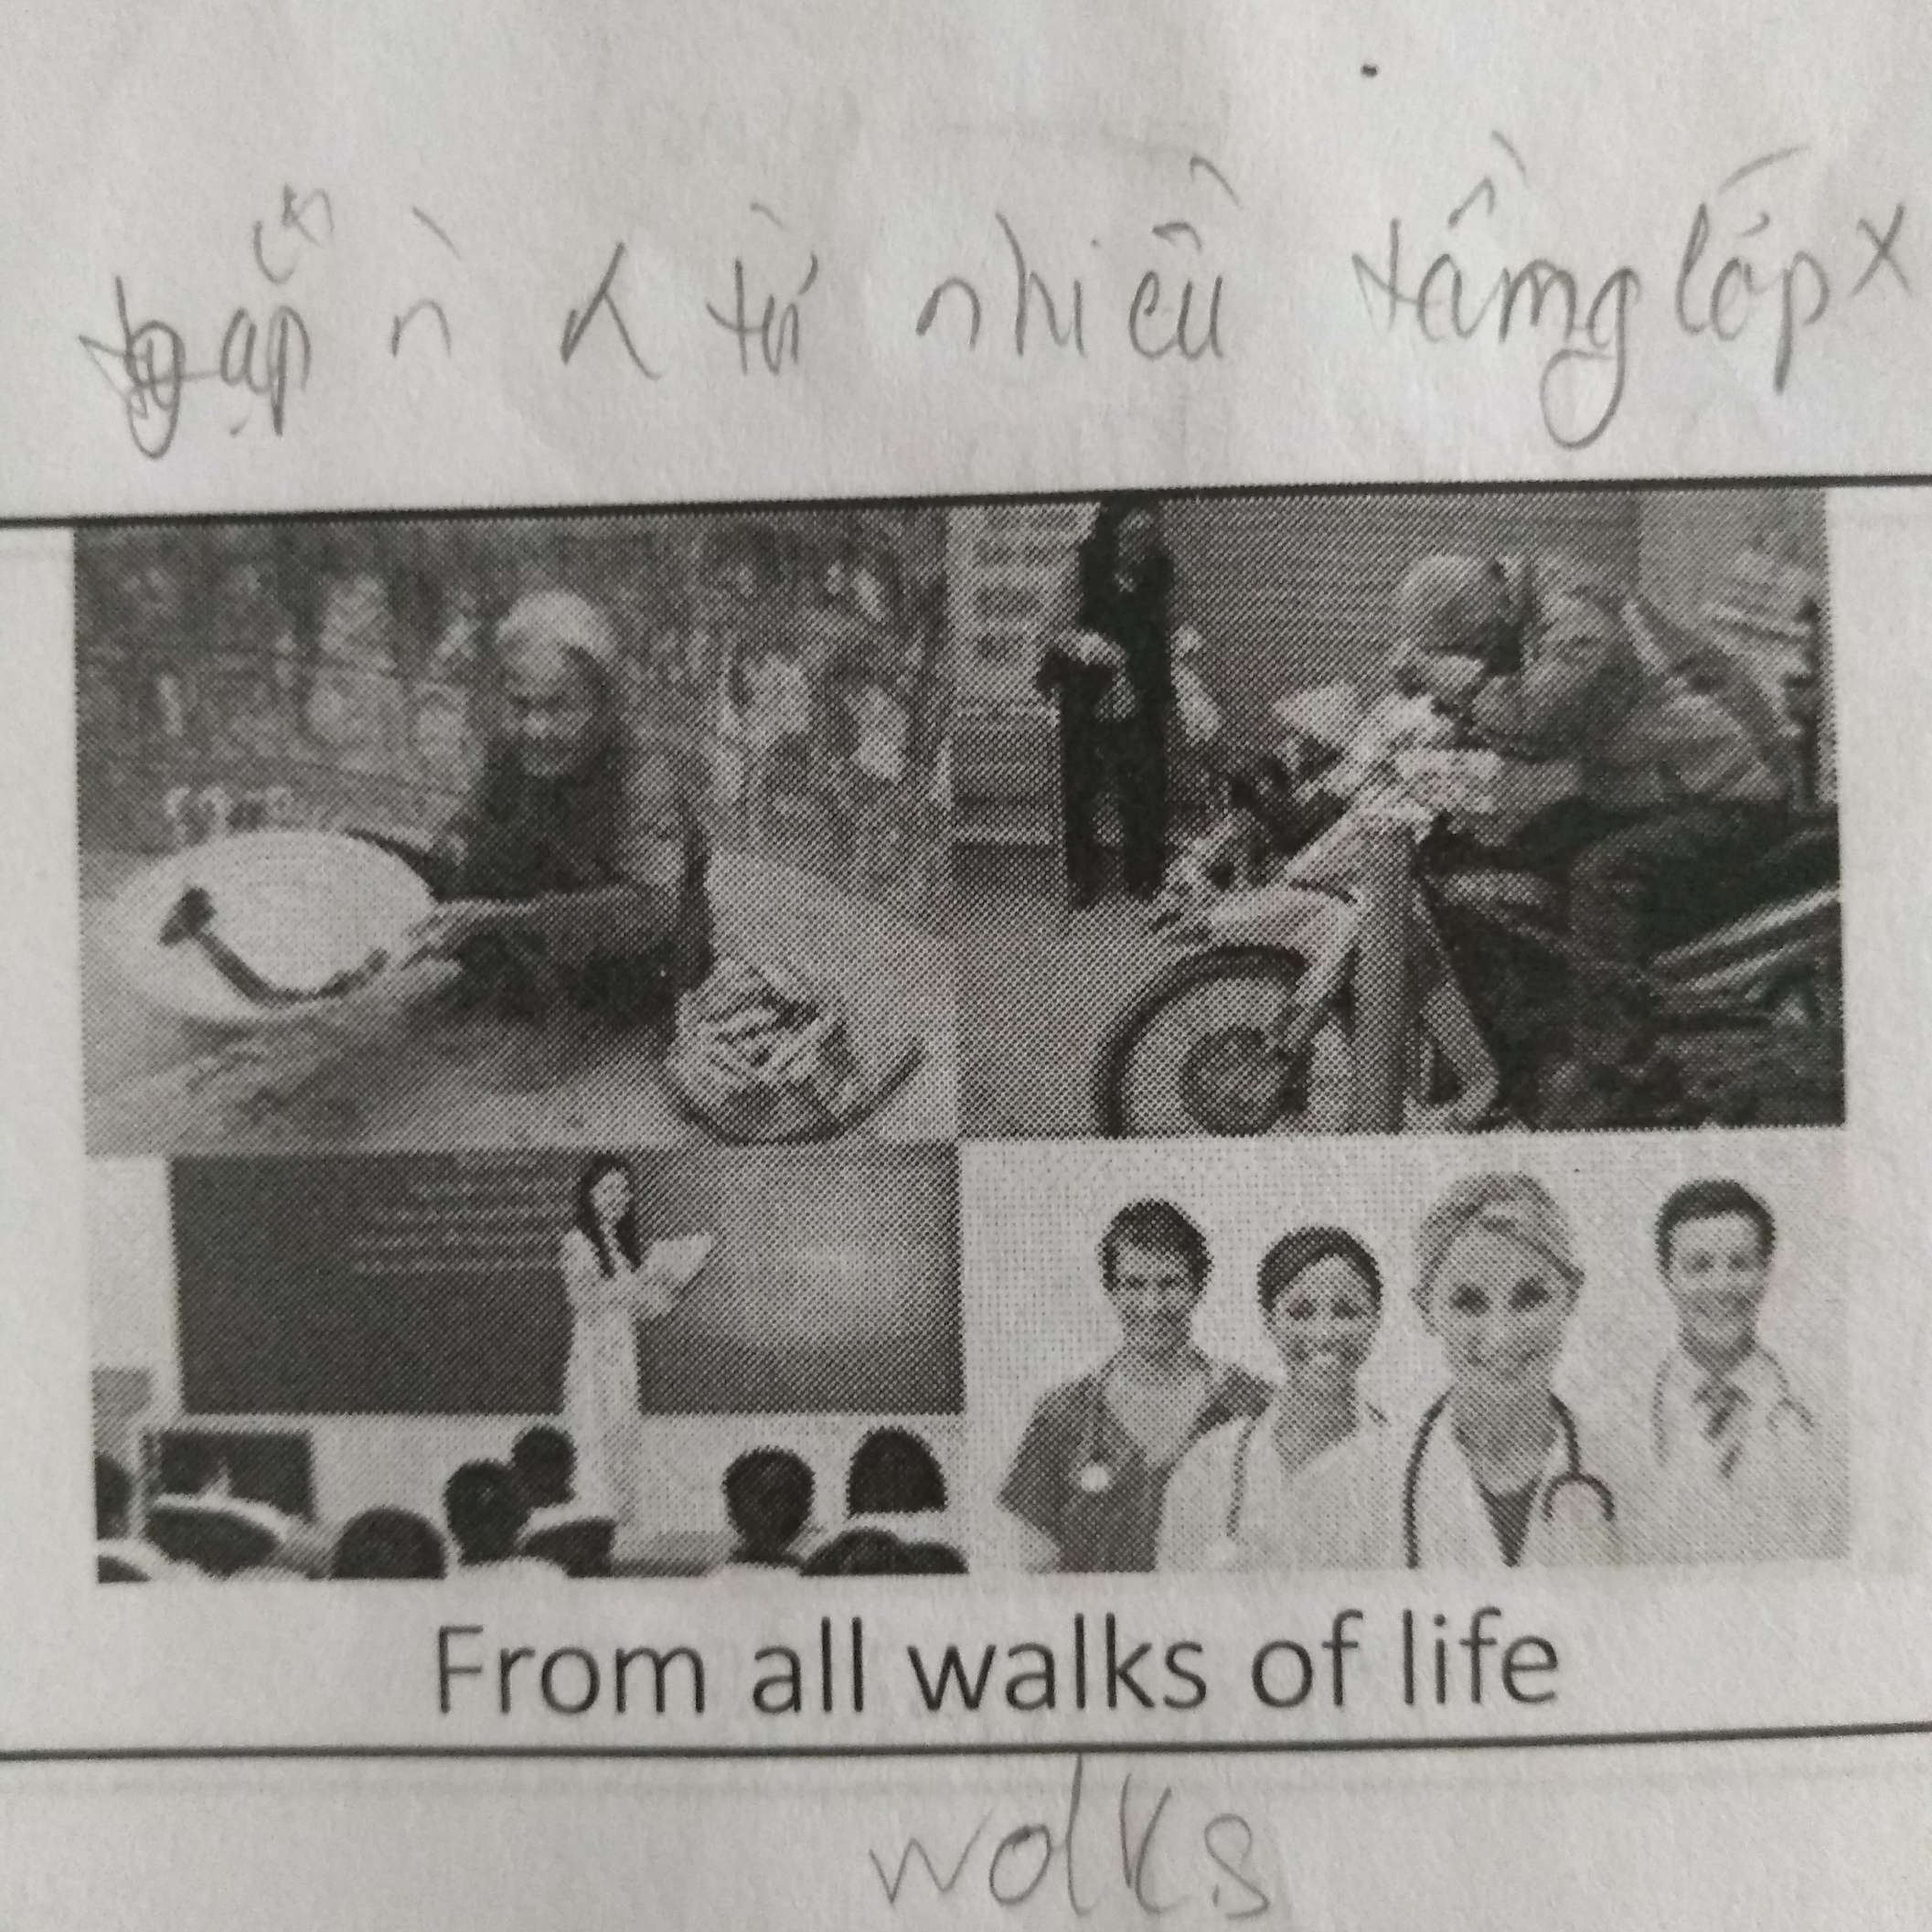 gặp n λ từ nhiều tầng lớp x
From all walks of life
wolks